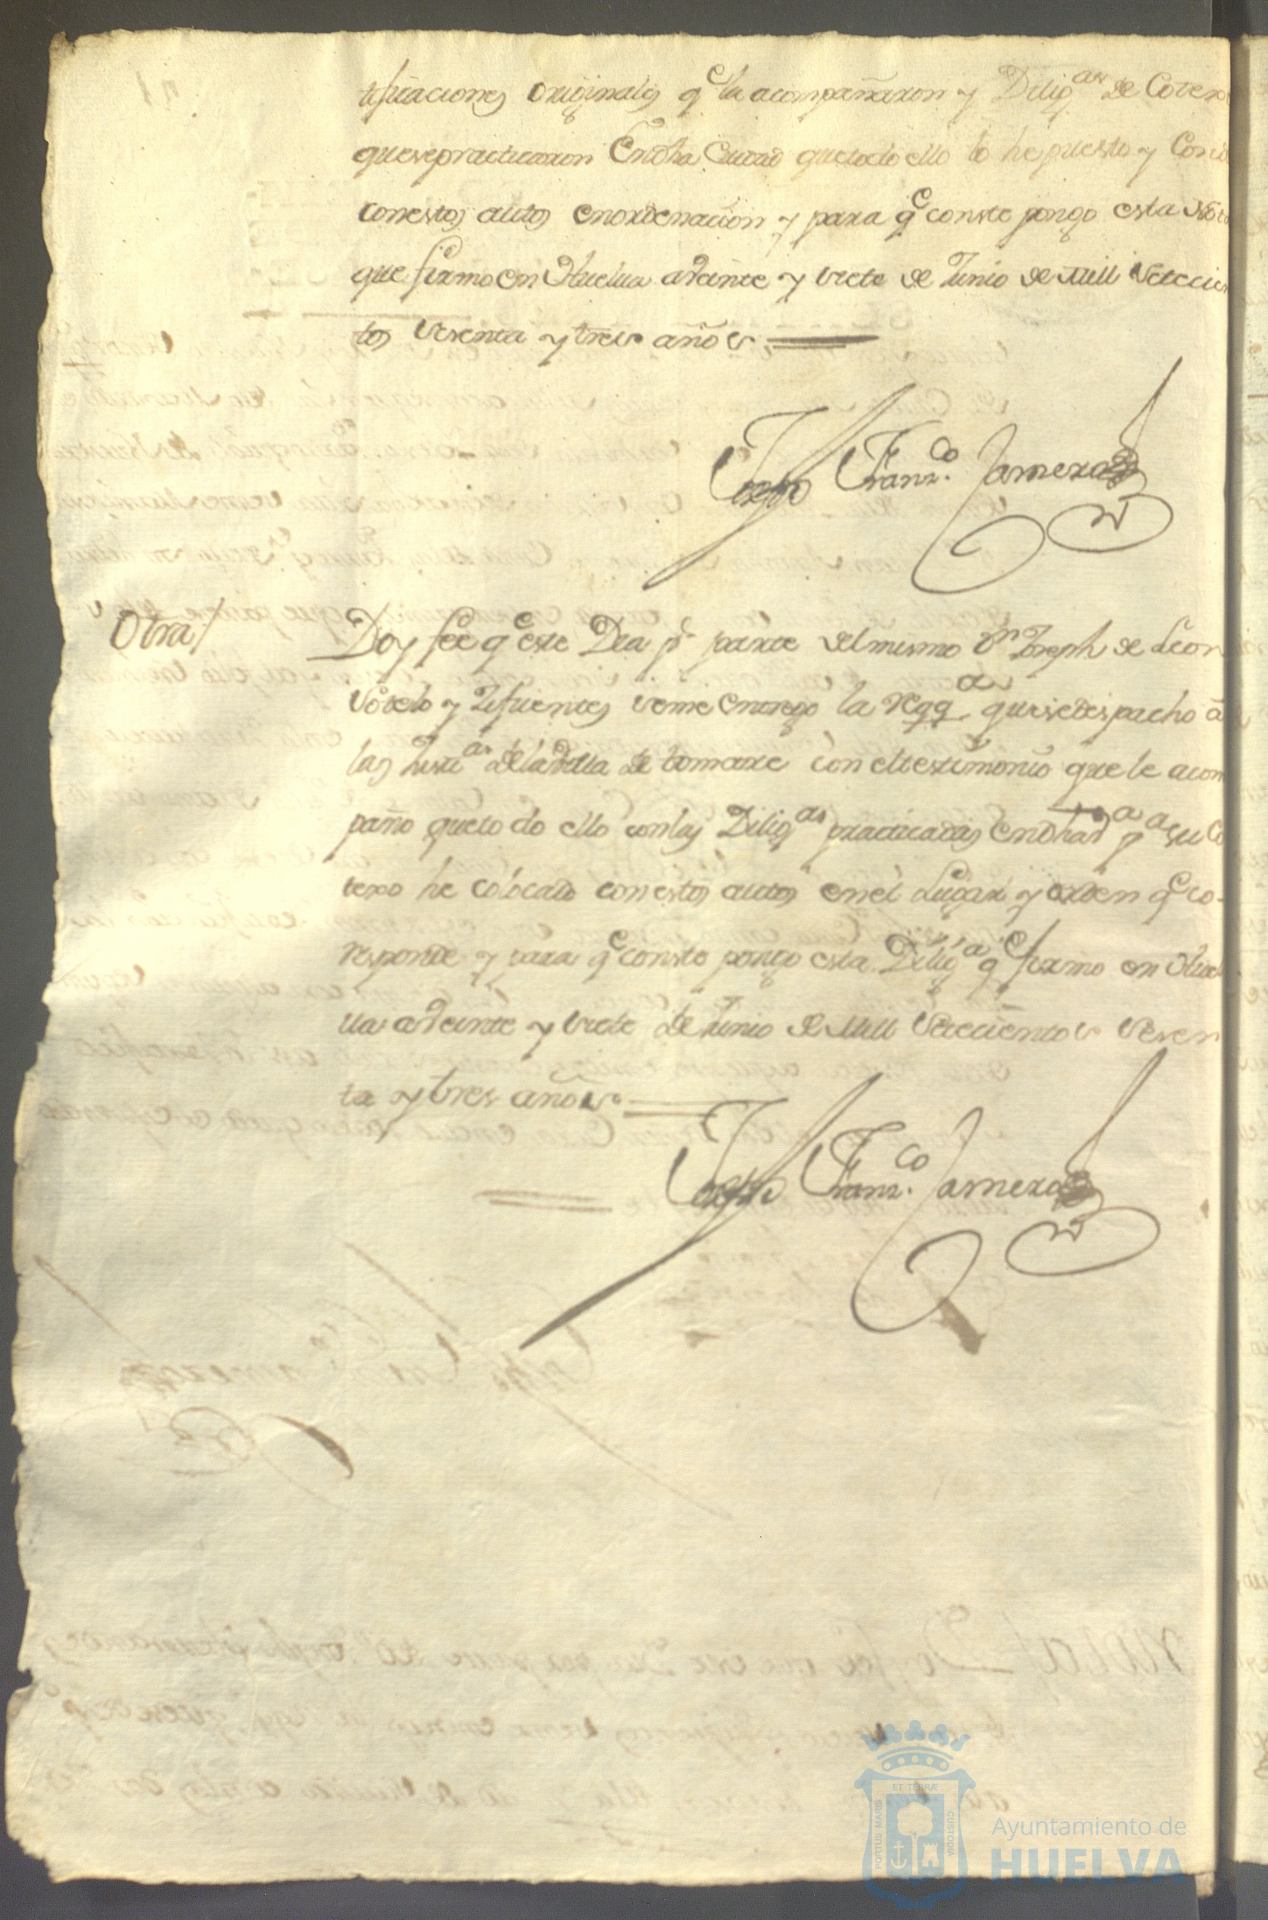 tificaciones originales q.e la acompañaron y Dilig.as de Cotexo
que se practicaron En dha Ciudad que todo ello lo he puesto y
con estos autos en ordenacion y para q.e conste pongo esta Nota
que firmo en Huelva a Veinte y siete de Junio de Mill Setecien
tos sesenta y tres años
Joseph Franz.co Jamera
Otra
Doy fee q.e este Dia p.r parte del mismo Dn Joseph de Leon
Sotelo y Zifuentes se me entrego la reqq.a que se despacho a
las Justi.as de la Villa de tomare con el testimonio que le acom
paño que todo ello con las Dilig.as practicadas en dha V.a p.a su Co
texo he colocado con estos autos en el Lugar y orden q.e co-
responde y para q.e conste pongo esta Dilig.a q.e firmo en Huel
va a Veinte y siete de Junio de Mill Setecientos sesen
ta y tres años
Joseph Franz.co Jamera
PORTUS MARIS
ET TERRÆ
CUSTODIA
Ayuntamiento de
HUELVA